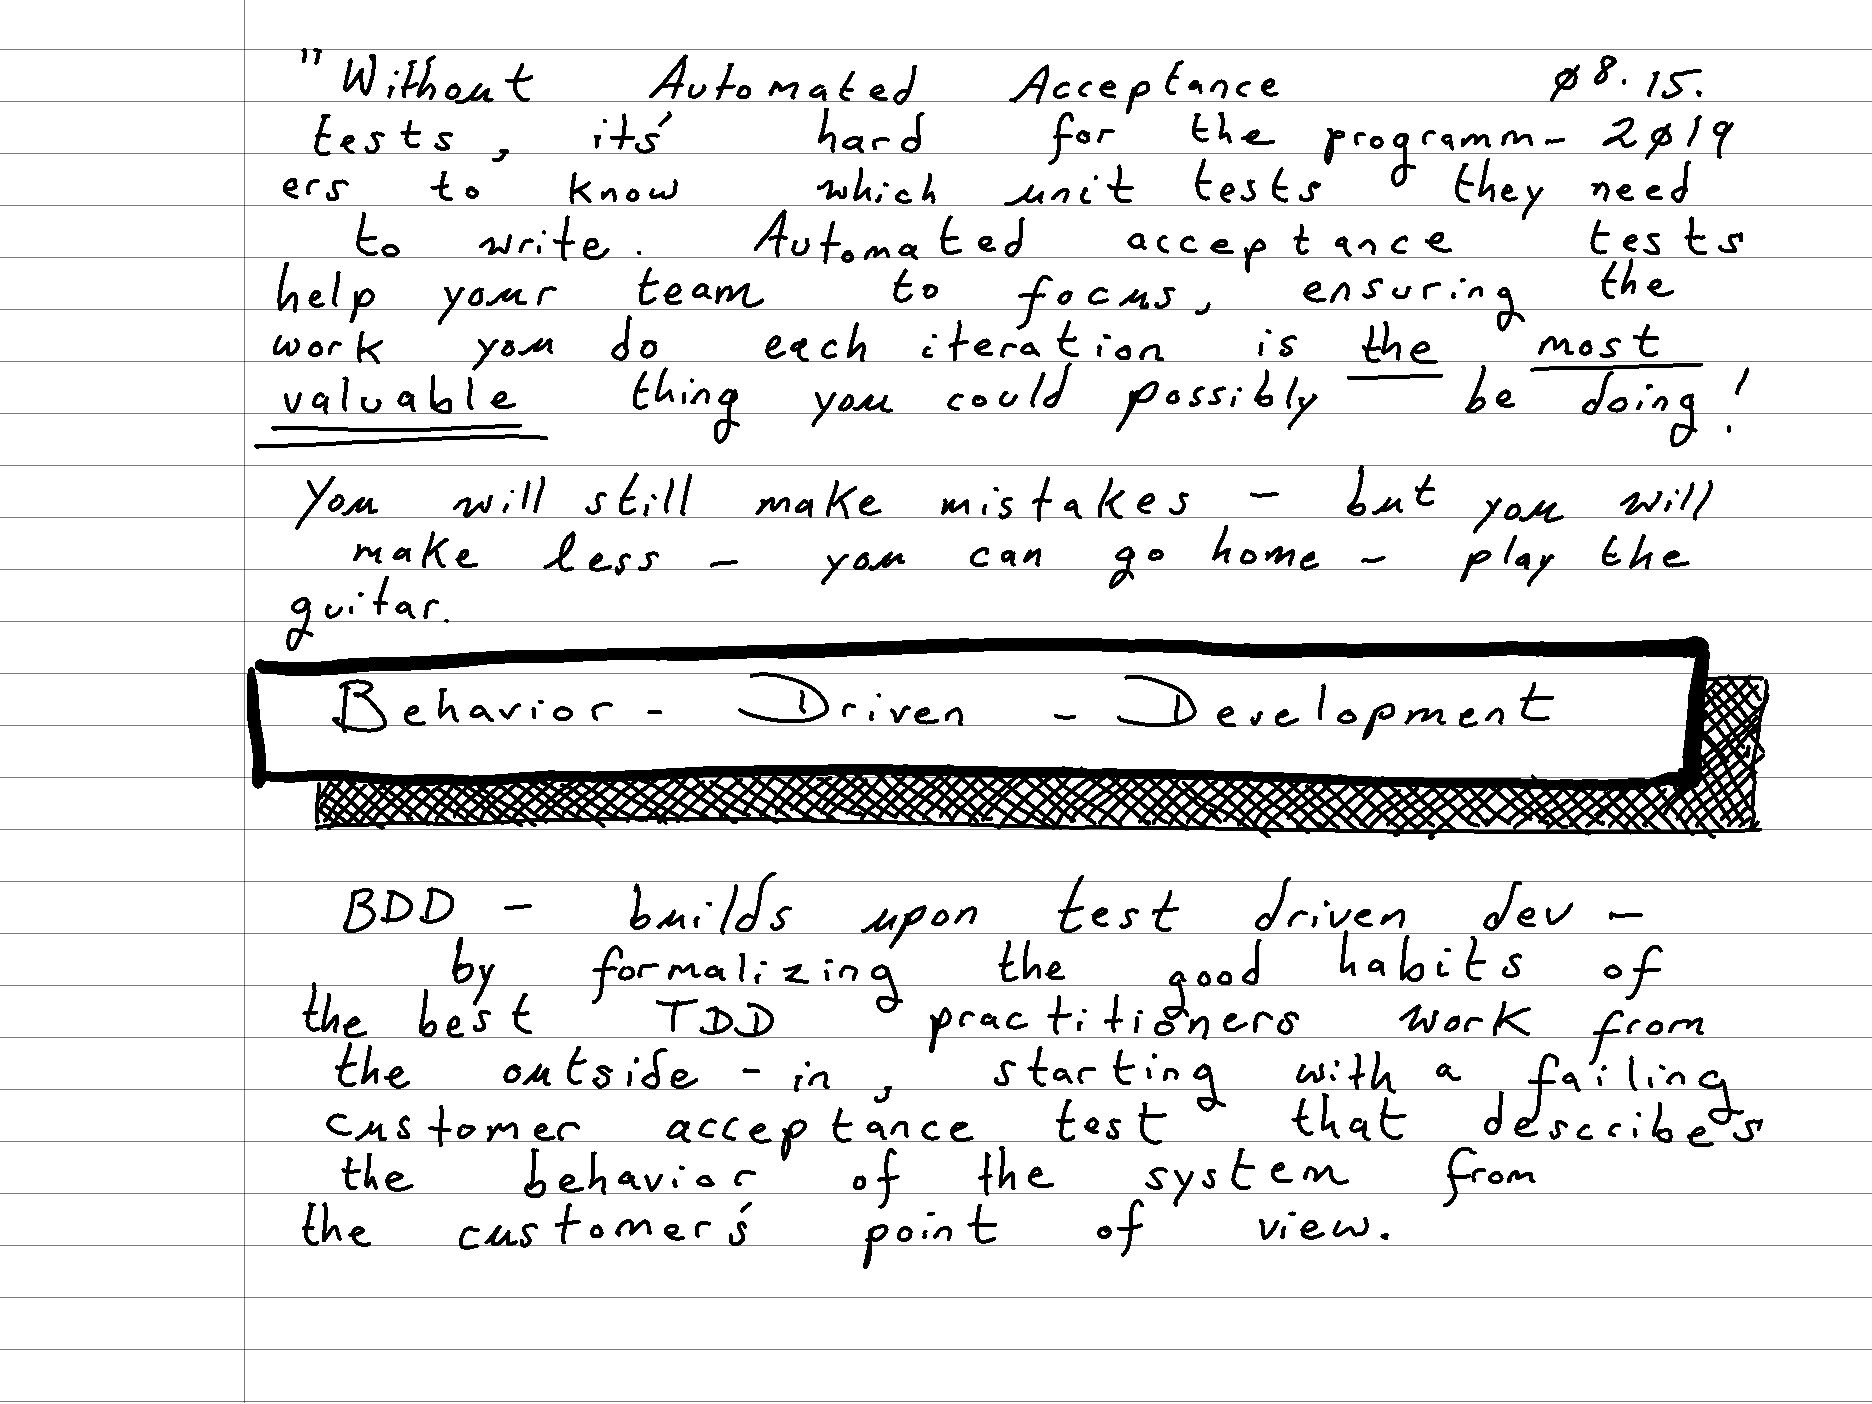 "Without Automated Acceptance ø8.15.
tests, its' hard for the programm- 2ø19
ers to know which unit tests they need
to write. Automated acceptance tests
help your team to focus, ensuring the
work you do each iteration is the most
valuable thing you could possibly be doing!
You will still make mistakes - but you will
make less - you can go home - play the
guitar.
Behavior - Driven - Development
BDD - builds upon test driven dev -
by formalizing the good habits of
the best TDD practitioners work from
the outside - in, starting with a failing
customer acceptance test that describes
the behavior of the system from
the customer's point of view.